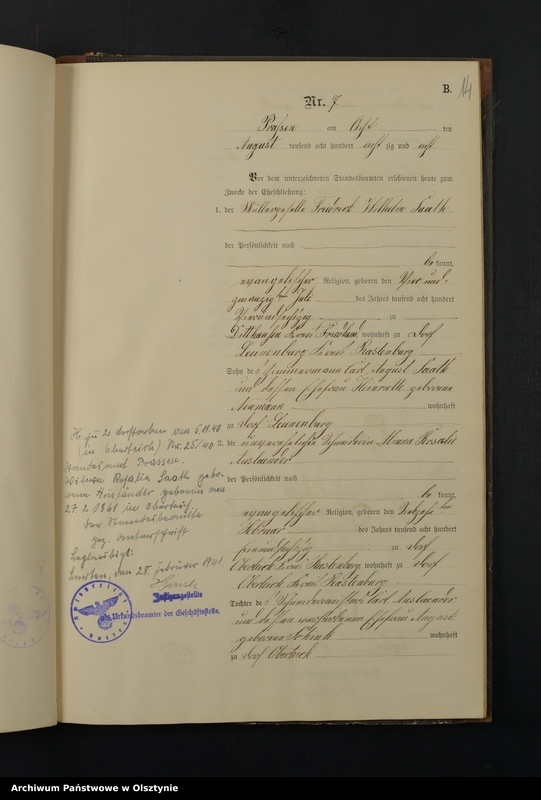 B.
14
Nr. 7
Prassen am Acht ten
August tausend acht hundert acht zig und acht
Vor dem unterzeichneten Standesbeamten erschienen heute zum
Zwecke der Eheschließung:
1. der Müllergeselle Friedrich Wilhelm Saath
der Persönlichkeit nach
be kannt,
evangelischer Religion, geboren den Vier und
zwanzigsten Juli des Jahres tausend acht hundert
Vierundsechszig zu
Kreis Friedland, wohnhaft zu Dorf
Leunenburg Kreis Rastenburg
Sohn des Zimmermann Carl August Saath
und dessen Ehefrau Heinriette geborene
Neumann wohnhaft
zu Dorf Leunenburg
2. die unverehelichte Mina Rosalie
Auslaender
der Persönlichkeit nach
be kannt,
evangelischer Religion, geboren den
Februar des Jahres tausend acht hundert
zu Dorf
Oberteich Kreis Rastenburg, wohnhaft zu Dorf
Oberteich Kreis Rastenburg
Tochter des Carl Auslaender
und dessen verstorbenen Ehefrau August
geborene wohnhaft
zu Dorf Oberteich
H. zu 2 verstorben am 5.11.40
(in Oberteich) Nr. 25/40
Standesamt Prassen.
Witwe Rosalie Saath gebo-
rene Ausländer geboren am
27 2 1861 in Oberteich
Der Standesbeamte
gez. Unterschrift
Beglaubigt:
Barten, den 25. Februar 1941
Justizangestellte
als Urkundsbeamter der Geschäftsstelle.
Archiwum Państwowe w Olsztynie